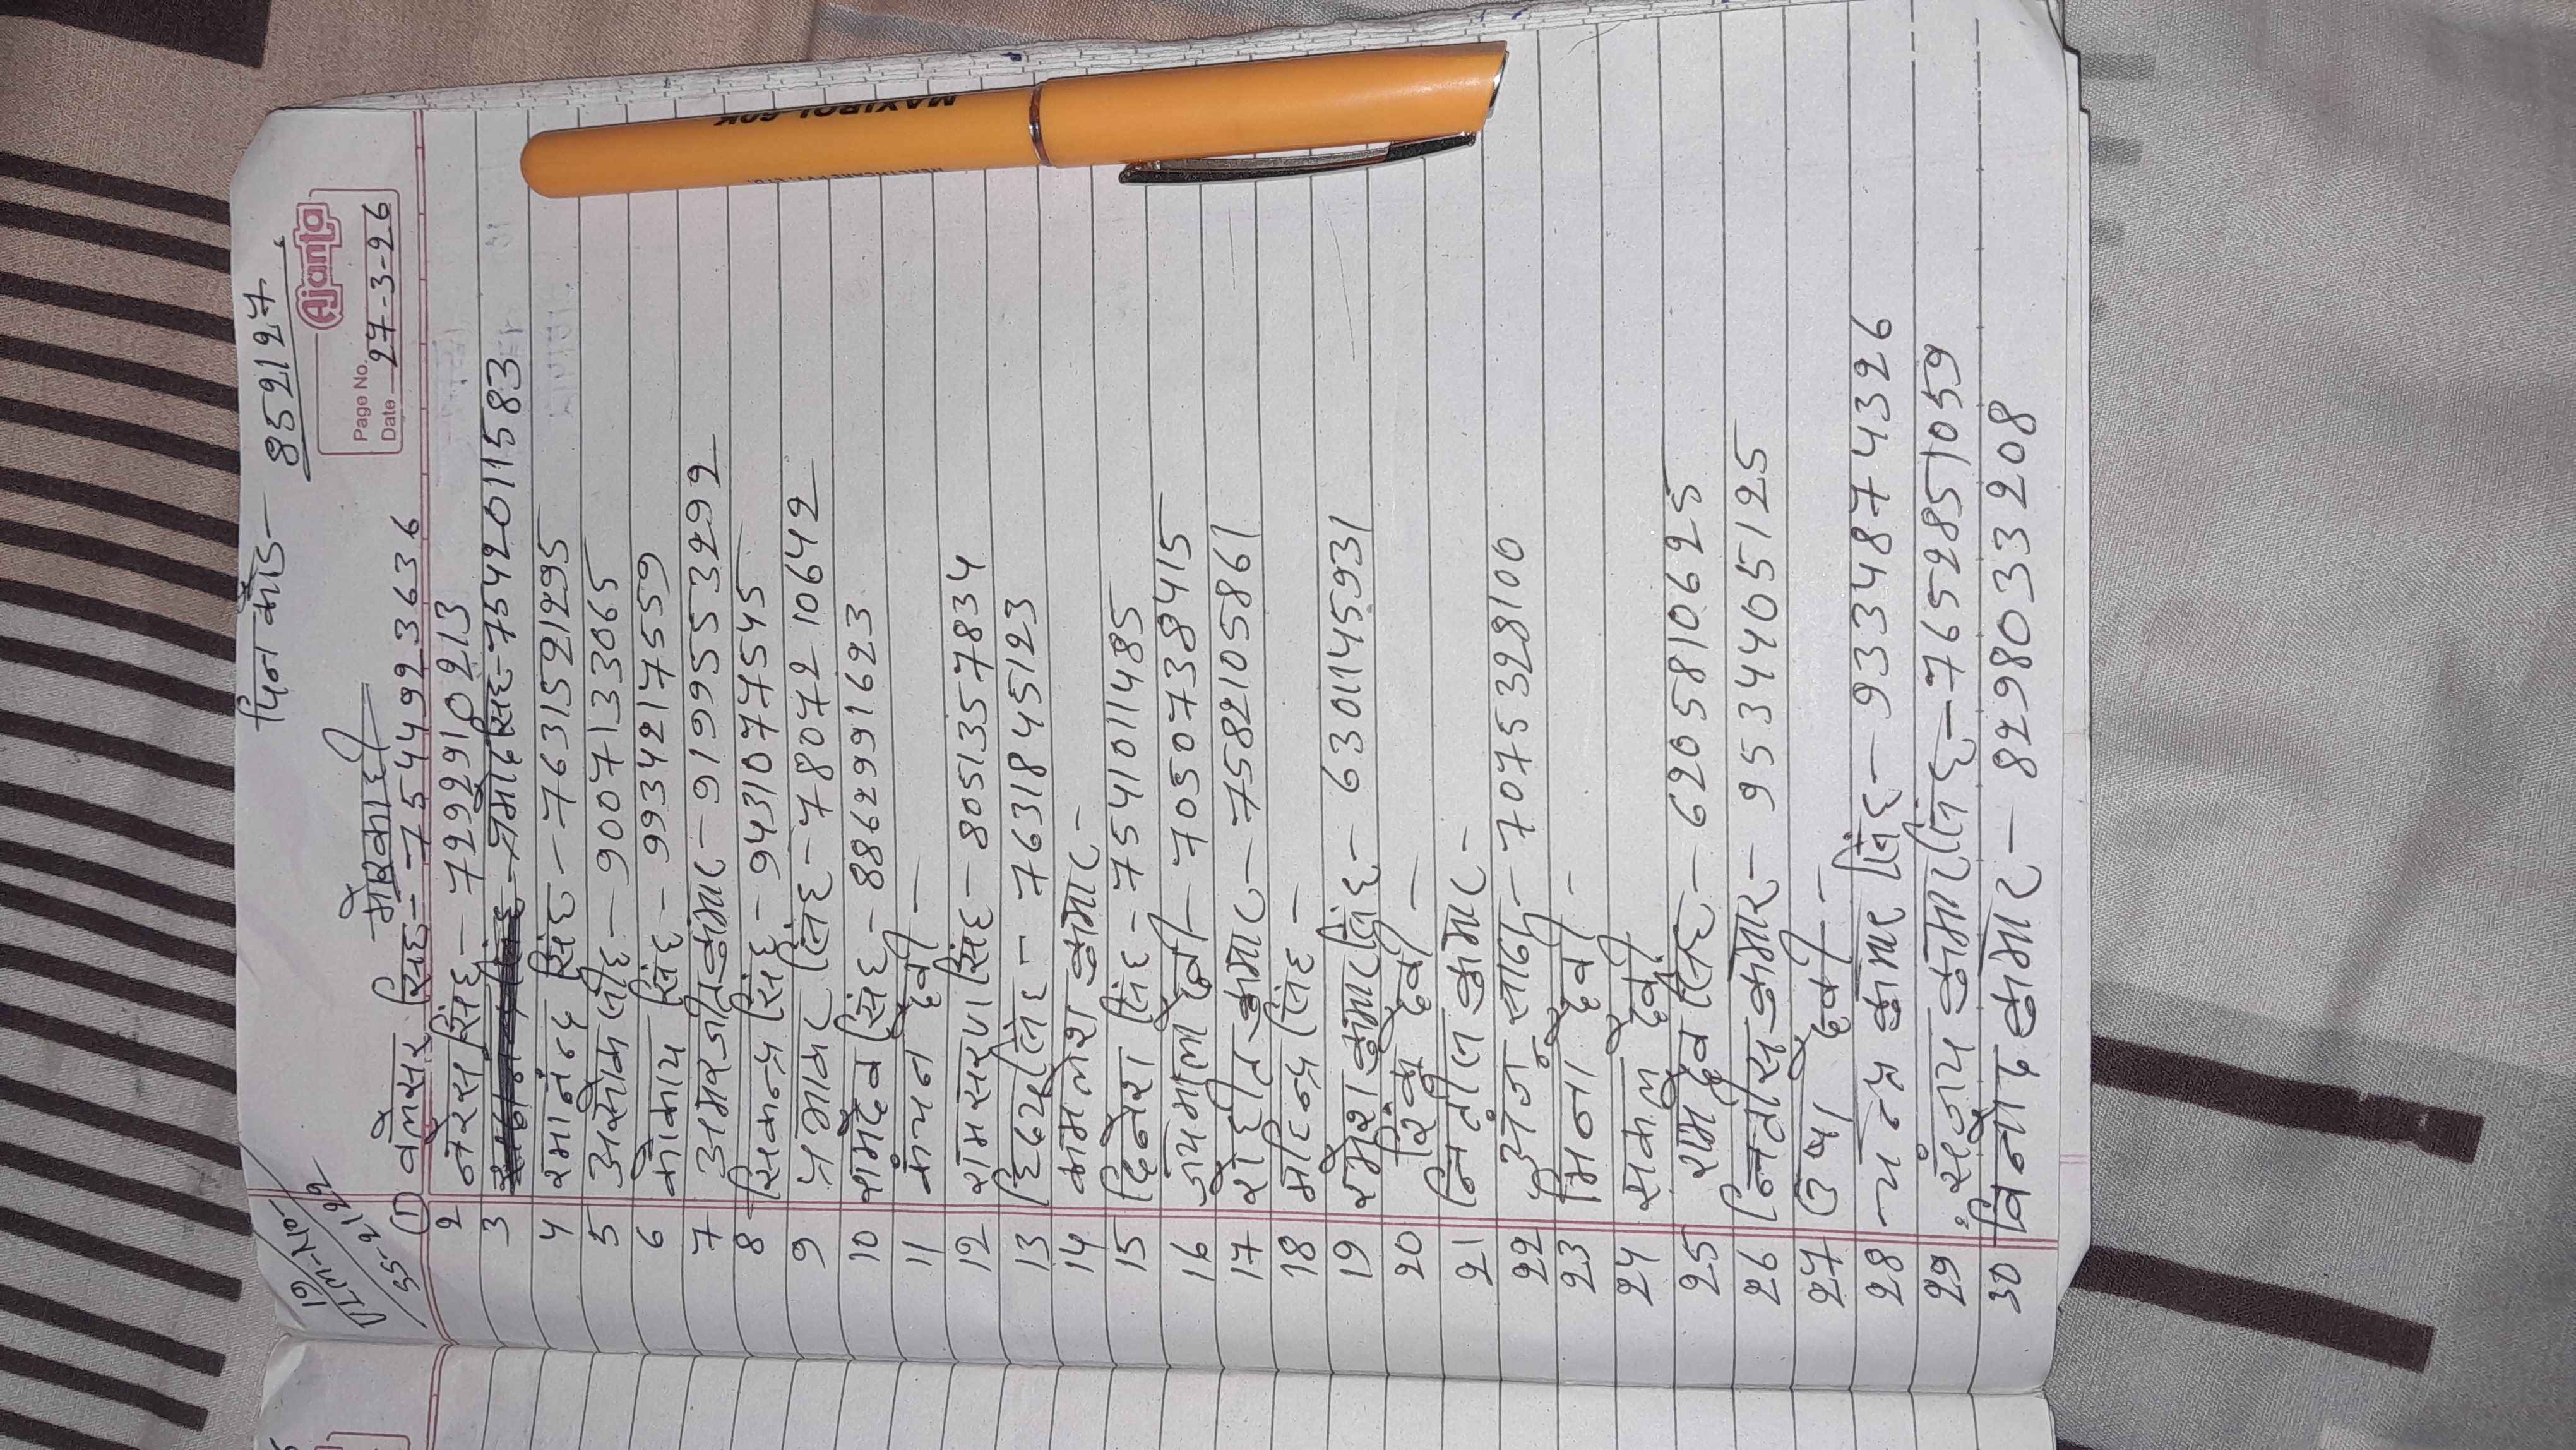 पिन कोड - 852127
Ajanta
Page No.
Date 27-3-26
19
VLM-No-
55-2192
मोरकाही
① वमेसर सिंह - 7544923636
2 नरेस सिंह - 7299910213
3 प्रमोद सिंह - 7542011583
4 रमानंद सिंह - 7631521295
5 असोक सींह - 9007133065
6 मोकाय सिंह - 9934217559
7 अमरजीत कुमार - 9199553292
8 सिकन्द्र सिंह - 9431077545
9 प्रभाकर सिंह - 7807210642
10 रामदेव सिंह - 8862991623
11 कंचन देवी -
12 रामसरण सिंह - 8051357834
13 हिदय सिंह - 7631845123
14 कमलेश कुमार -
15 दिनेश सिंह - 7541011485
16 जयमाला देवी - 7050738415
17 रोहीत कुमार - 7582105861
18 महिन्द्र सिंह -
19 रमेश कुमार सिंह - 6301145931
20 रिंकू देवी -
21 नितील कुमार -
22 अंजू साद - 7075328100
23 मिना देवी -
24 सकल देवी
25 राम देव सिंह - 6205810625
26 निवास कुमार - 9534405125
27 उषा देवी -
28 चन्द्र कुमार सिंह - 9334874326
29 संजय कुमार सिंह - 7652851059
30 विनोद कुमार - 8298033208
MAXIROL-60K